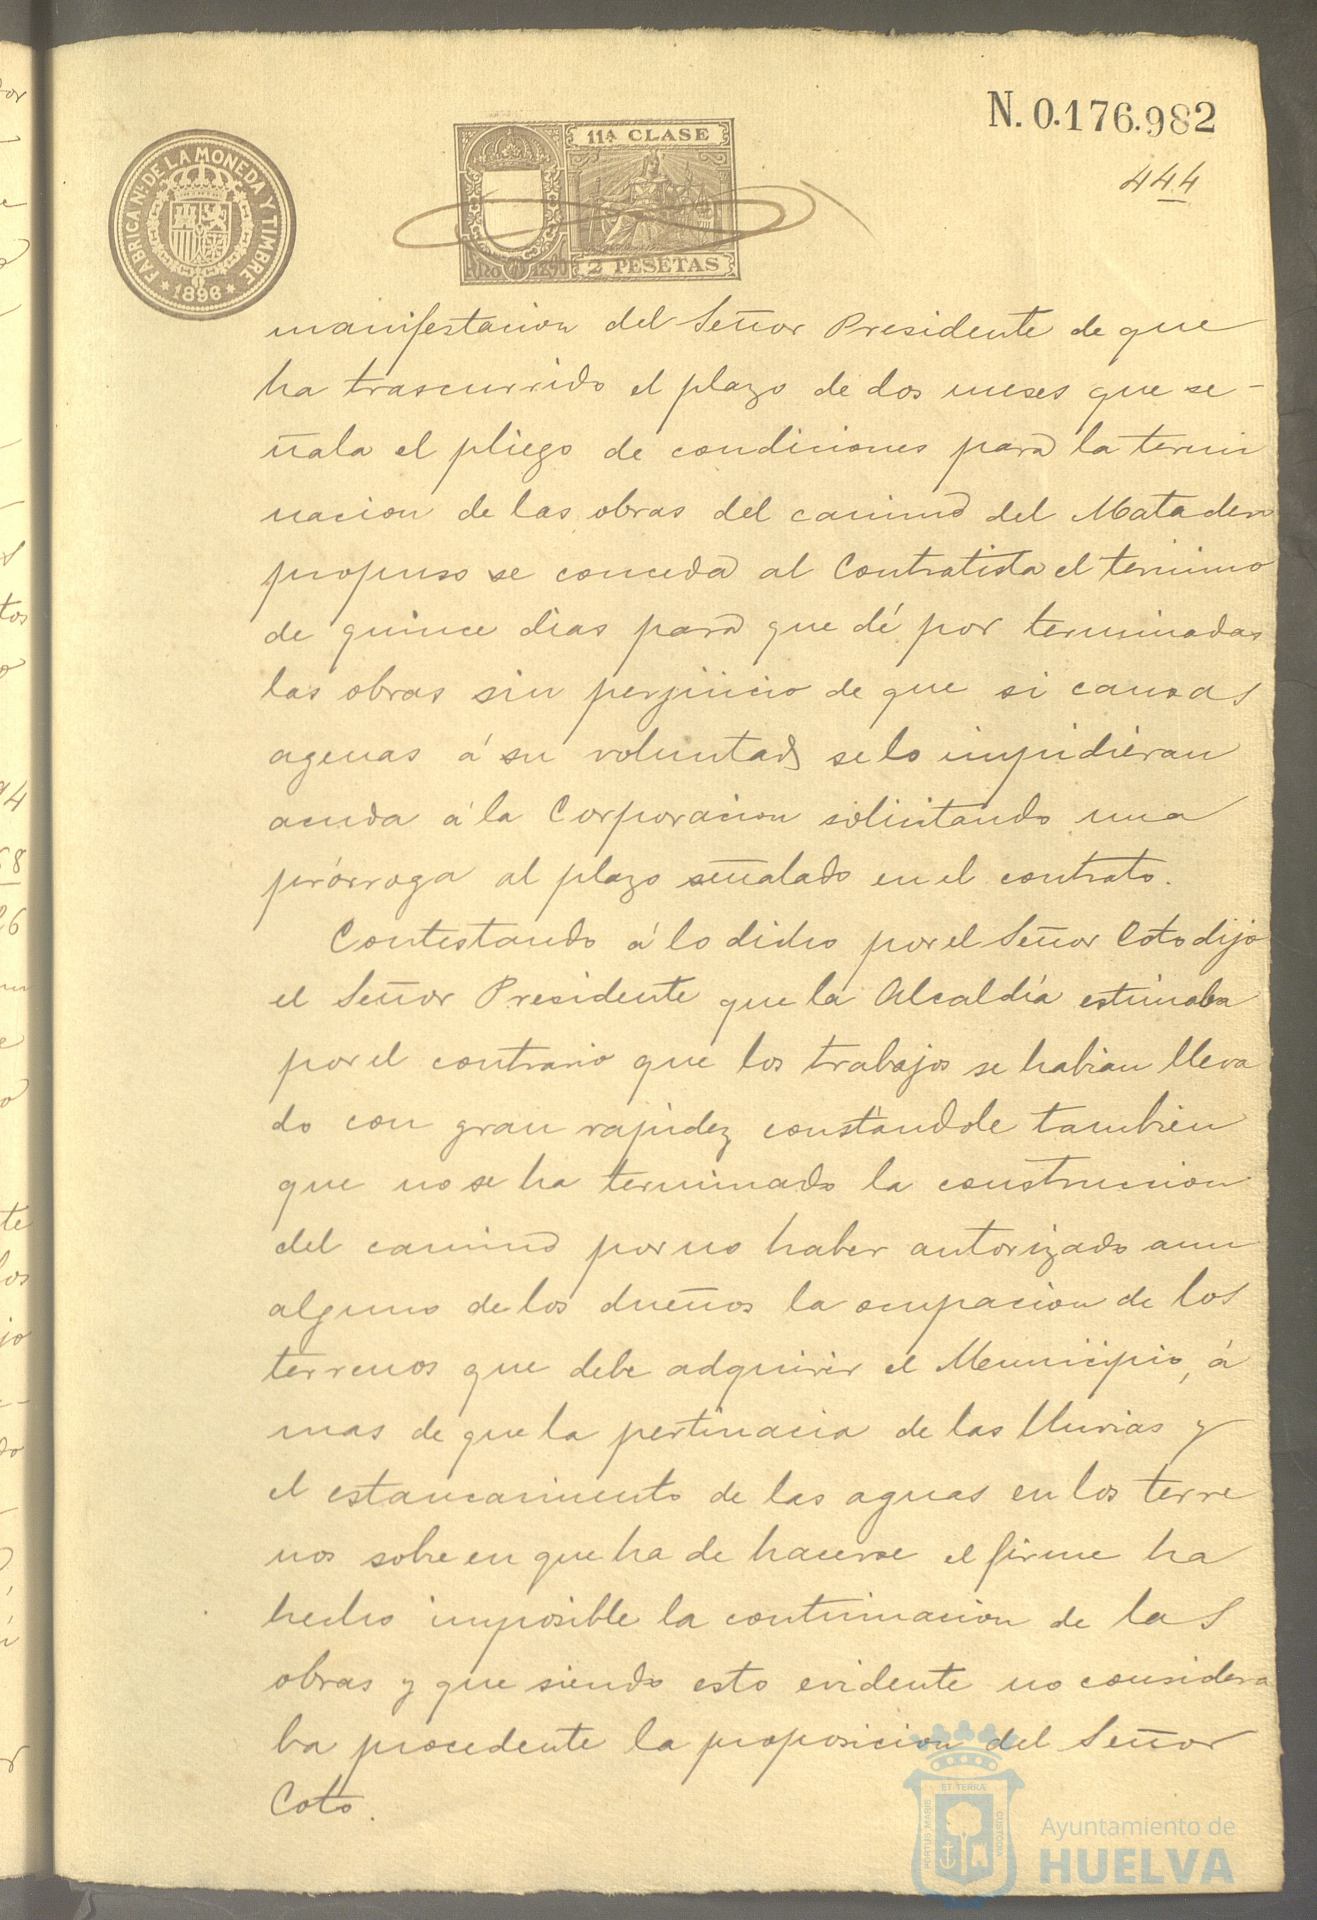 N. 0.176.982
444
FABRICA Nl. DE LA MONEDA Y TIMBRE
* 1896 *
11ª CLASE
Año 1896
2 PESETAS
manifestacion del Señor Presidente de que
ha trascurrido el plazo de dos meses que se-
ñala el pliego de condiciones para la termi
nacion de las obras del camino del Matadero
propuso se conceda al Contratista el termino
de quince dias para que dé por terminadas
las obras sin perjuicio de que si causas
agenas á su voluntad se lo impidiéran
acuda á la Corporacion solicitando una
prórroga al plazo señalado en el contrato.
Contestando á lo dicho por el Señor Coto dijo
el Señor Presidente que la Alcaldía estimaba
por el contrario que los trabajos se habian lleva
do con gran rapidez constándole tambien
que no se ha terminado la construccion
del camino por no haber autorizado aun
alguno de los dueños la ocupacion de los
terrenos que debe adquirir el Municipio, á
mas de que la pertinacia de las lluvias y
el estancamiento de las aguas en los terre
nos sobre en que ha de hacerse el firme ha
hecho imposible la continuacion de las
obras y que siendo esto evidente no considera
ba procedente la proposicion del Señor
Coto.
PORTUS MARIS
ET TERRA
CUSTODIA
Ayuntamiento de
HUELVA